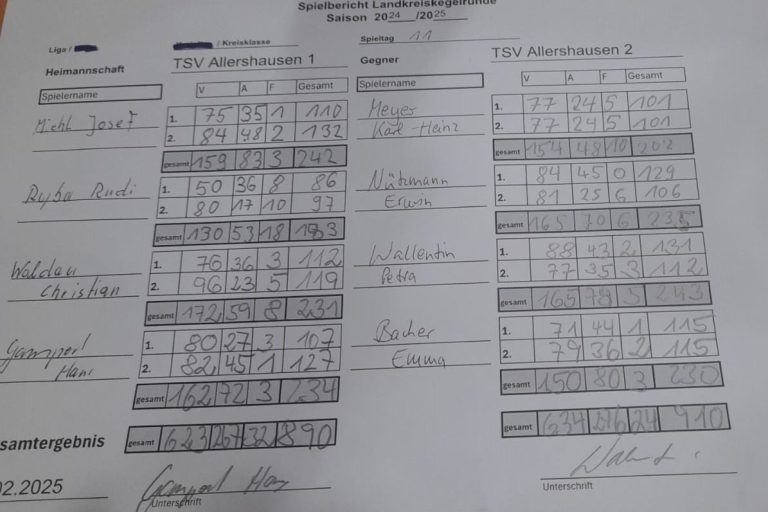 Spielbericht Landkreiskegelrunde
Saison 2024 /2025
Liga / / Kreisklasse Spieltag 11
Heimannschaft TSV Allershausen 1 Gegner TSV Allershausen 2
Spielername V A F Gesamt Spielername V A F Gesamt
Michl Josef 1. 75 35 1 110 Meyer 1. 77 24 5 101
2. 84 48 2 132 Karl-Heinz 2. 77 24 5 101
gesamt 159 83 3 242 gesamt 154 48 10 202
Ryba Rudi 1. 50 36 8 86 Nützmann 1. 84 45 0 129
2. 80 17 10 97 Erwin 2. 81 25 6 106
gesamt 130 53 18 183 gesamt 165 70 6 235
Waldau 1. 76 36 3 112 Wallentin 1. 88 43 2 131
Christian 2. 96 23 5 119 Petra 2. 77 35 3 112
gesamt 172 59 8 231 gesamt 165 78 5 243
Gamperl 1. 80 27 3 107 Bacher 1. 71 44 1 115
Hans 2. 82 45 1 127 Emma 2. 79 36 2 115
gesamt 162 72 3 234 gesamt 150 80 3 230
samtergebnis gesamt 623 267 32 890 gesamt 634 276 24 910
02.2025 Gamperl Hans
Unterschrift Unterschrift